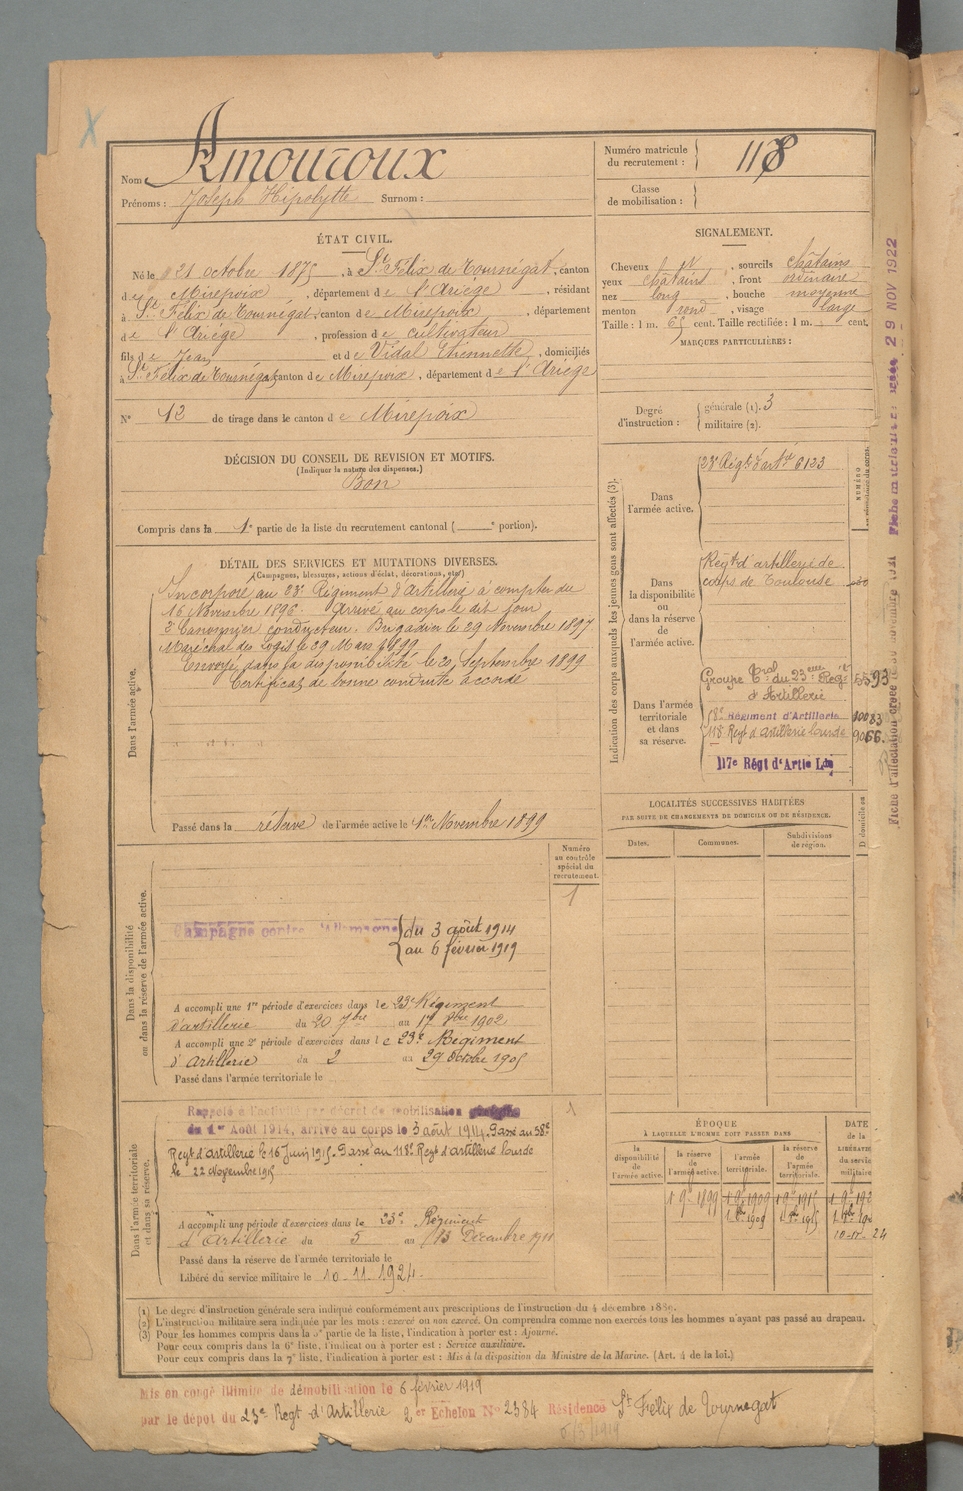 Nom : Amouroux
Prénoms : Joseph Hipolytte Surnom :
Numéro matricule du recrutement : 118
Classe de mobilisation :
ÉTAT CIVIL.
Né le 21 octobre 1875, à St Félix de Tournégat, canton
de Mirepoix, département de l'Ariège, résidant
à St Félix de Tournégat, canton de Mirepoix, département
de l'Ariège, profession de cultivateur
fils de Jean et de Vidal Etiennette, domiciliés
à St Félix de Tournégat, canton de Mirepoix, département de l'Ariège
No 12 de tirage dans le canton de Mirepoix
DÉCISION DU CONSEIL DE REVISION ET MOTIFS.
(Indiquer la nature des dispenses.)
Bon
Compris dans la 1e partie de la liste du recrutement cantonal ( e portion).
SIGNALEMENT.
Cheveux, sourcils châtains
yeux châtains, front ordinaire
nez long, bouche moyenne
menton rond, visage large
Taille : 1 m. 65 cent. Taille rectifiée : 1 m. cent.
MARQUES PARTICULIÈRES :
Degré d'instruction : générale (1). 3
militaire (2).
DÉTAIL DES SERVICES ET MUTATIONS DIVERSES.
(Campagnes, blessures, actions d'éclat, décorations, etc.)
Dans l'armée active.
Incorporé au 23e Régiment d'Artillerie à compter du
16 Novembre 1896 Arrivé au corps le dit jour
2e Canonnier conducteur. Brigadier le 29 Novembre 1897
Maréchal des Logis le 29 Mars 1899
Envoyé dans la disponibilité le 20 Septembre 1899
Certificat de bonne conduite accordé
Passé dans la réserve de l'armée active le 1er Novembre 1899
Indication des corps auxquels les jeunes gens sont affectés (3).
Dans l'armée active.
23e Régt d'artie 6123
Dans la disponibilité ou dans la réserve de l'armée active.
Regt d'artillerie de
corps de Toulouse
Dans l'armée territoriale et dans sa réserve.
Groupe Tral du 23eme Regt
d'Artillerie
Régiment d'Artillerie
118e Regt d'artillerie lourde
117e Régt d'Artie Lde
29 NOV 1922
LOCALITÉS SUCCESSIVES HABITÉES
PAR SUITE DE CHANGEMENTS DE DOMICILE OU DE RÉSIDENCE.
Dates. Communes. Subdivisions de région.
Dans la disponibilité ou dans la réserve de l'armée active.
Numéro au contrôle spécial du recrutement.
1
Campagne contre l'Allemagne du 3 août 1914
au 6 février 1919
A accompli une 1re période d'exercices dans le 23e Régiment
d'artillerie du 20 7bre au 17 8bre 1902
A accompli une 2e période d'exercices dans le 23e Régiment
d'Artillerie du 2 au 29 octobre 1905
Passé dans l'armée territoriale le
Dans l'armée territoriale et dans sa réserve.
Rappelé à l'activité par décret de mobilisation
du 1er Août 1914, arrivé au corps le 3 août 1914. Passé au 58e
Regt d'artillerie le 16 Juin 1915. Passé au 118e Regt d'artillerie lourde
le 22 Novembre 1915
1
A accompli une période d'exercices dans le 23e Régiment
d'Artillerie du 5 au 13 Décembre 1911
Passé dans la réserve de l'armée territoriale le
Libéré du service militaire le 10-11-1924.
ÉPOQUE
À LAQUELLE L'HOMME DOIT PASSER DANS
DATE de la LIBÉRATION du service militaire.
la disponibilité de l'armée active. la réserve de l'armée active. l'armée territoriale. la réserve de l'armée territoriale.
1 9bre 1899 1 9bre 1909 1 9bre 1915
(1) Le degré d'instruction générale sera indiqué conformément aux prescriptions de l'instruction du 4 décembre 1889.
(2) L'instruction militaire sera indiquée par les mots : exercé ou non exercé. On comprendra comme non exercés tous les hommes n'ayant pas passé au drapeau.
(3) Pour les hommes compris dans la 5e partie de la liste, l'indication à porter est : Ajourné.
Pour ceux compris dans la 6e liste, l'indication à porter est : Service auxiliaire.
Pour ceux compris dans la 7e liste, l'indication à porter est : Mis à la disposition du Ministre de la Marine. (Art. 4 de la loi.)
Mis en congé illimité de démobilisation le 6 février 1919
par le dépôt du 23e Regt d'Artillerie 2e Echelon No 2384 Résidence St Félix de Tournegat